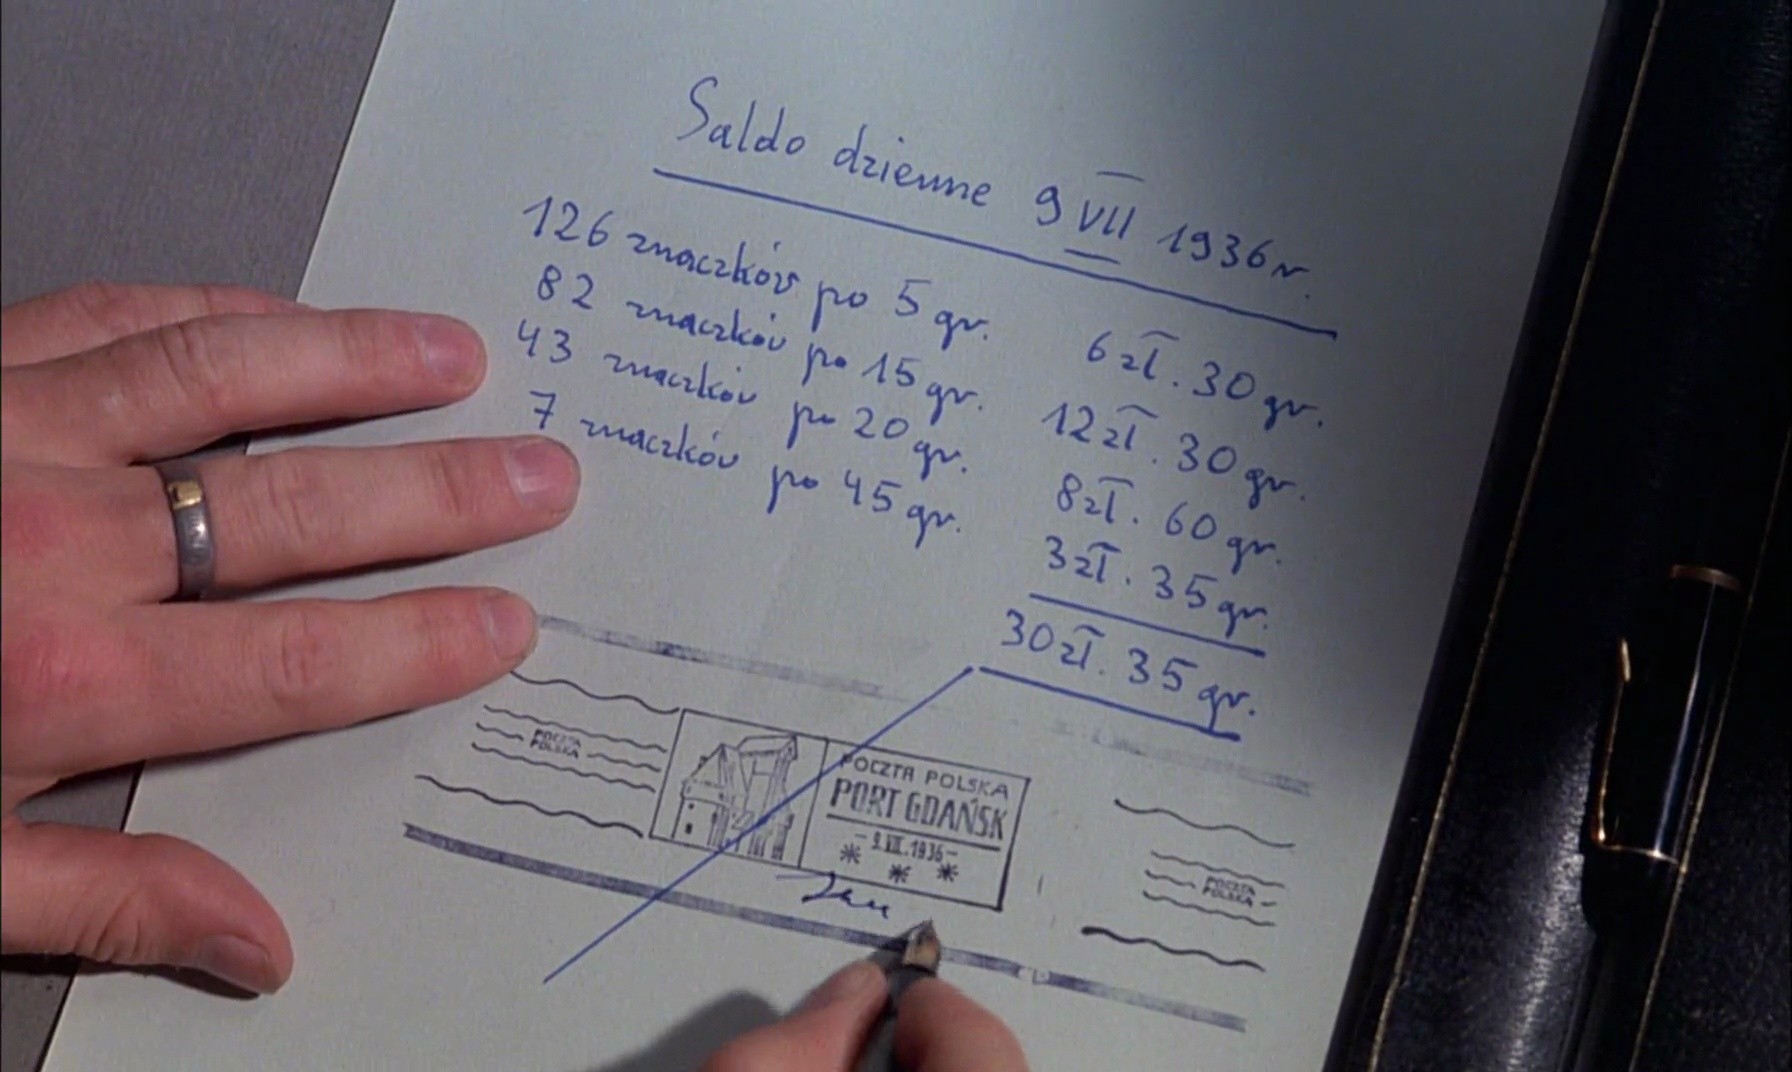 Saldo dzienne 9 VII 1936 r.
126 znaczków po 5 gr. 6 zł. 30 gr.
82 znaczków po 15 gr. 12 zł. 30 gr.
43 znaczków po 20 gr. 8 zł. 60 gr.
7 znaczków po 45 gr. 3 zł. 35 gr.
30 zł. 35 gr.
POCZTA
POLSKA
POCZTA POLSKA
PORT GDAŃSK
- 9.VII.1936 -
* * *
POCZTA
POLSKA
Jan